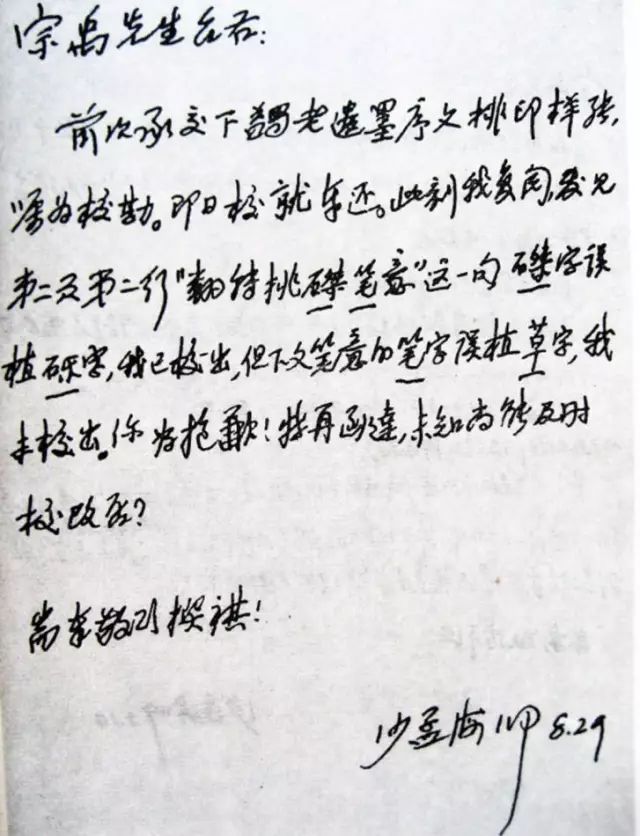 宗禹先生台右:
前次承交下蠲老遗墨序文排印样张,
嘱为校勘。即日校就奉还。此刻我复阅,发见
第二页第二行"翻能挑磔笔意"这一句 磔字误
植砾字,我已校出,但下文笔意的笔字误植草字,我
未校出。你为抱歉!特再函达,未知尚能及时
校改否?
耑奉敬颂撰祺!
沙孟海 8.29